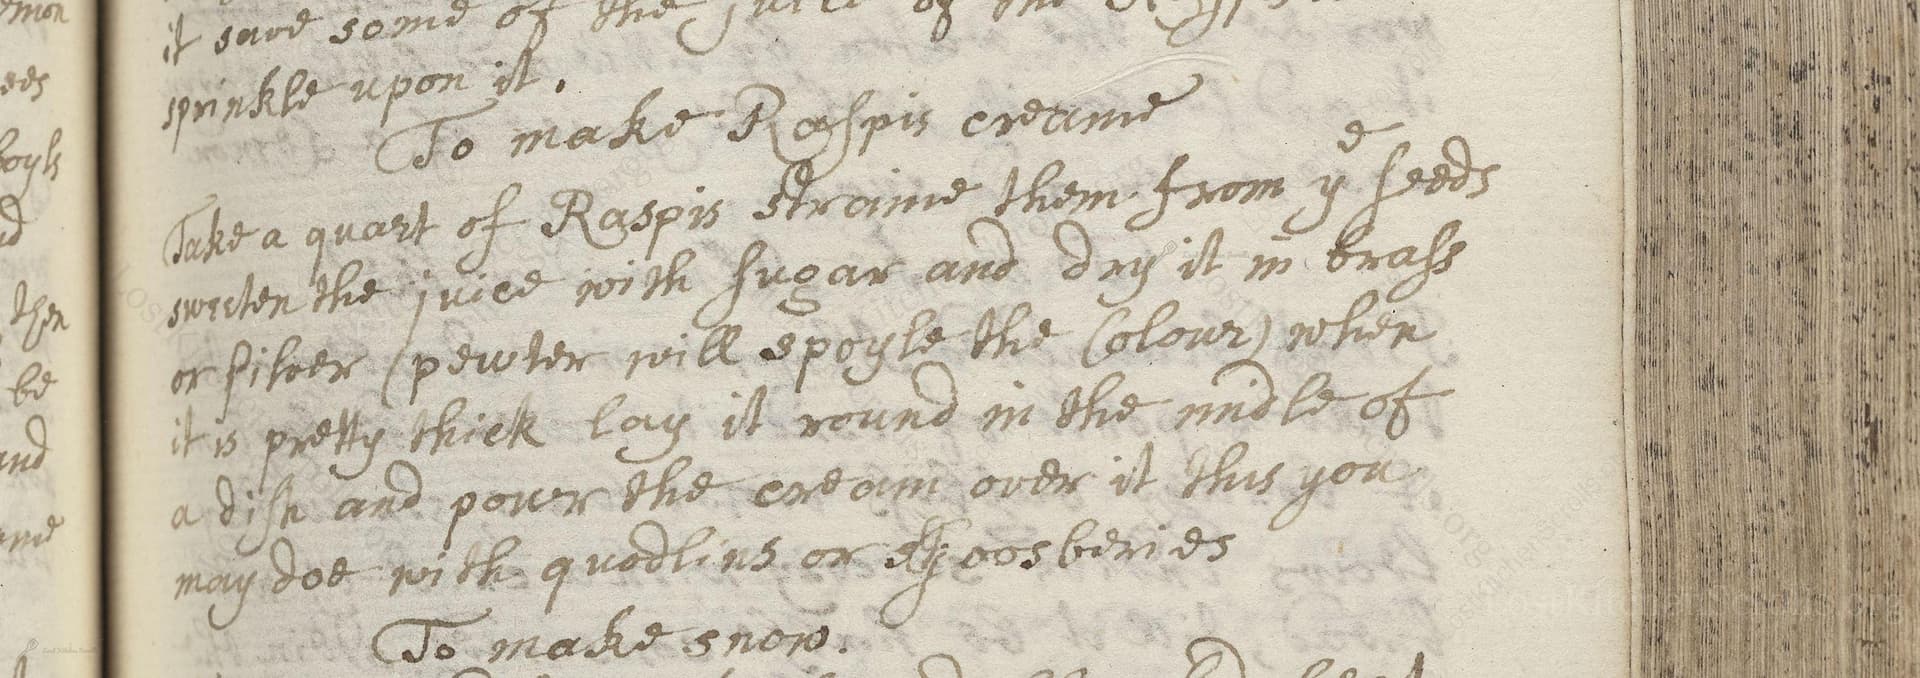 it save some of the juice of the
sprinkle upon it.
To make Raspis creame
Take a quart of Raspis straine them from yᵉ seeds
sweeten the juice with sugar and dry it in brass
or silver (pewter will spoyle the Colour) when
it is pretty thick lay it round in the midle of
a dish and pour the cream over it this you
may doe with quodlins or Goosberies
To make snow.
emon
ees
boyls
then
be
and